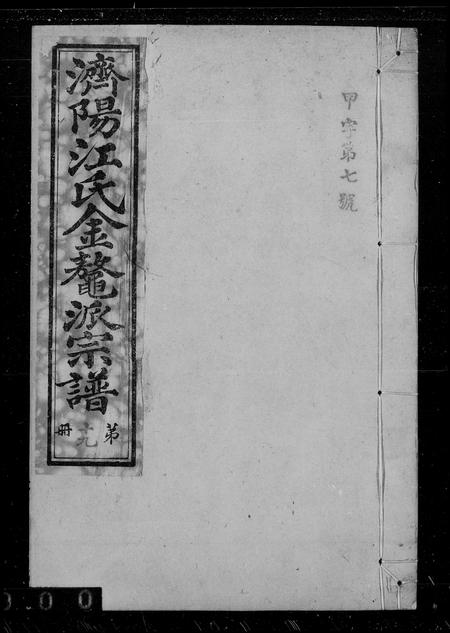 甲字第七號
濟陽江氏金鰲派宗譜
第十九冊
0 0 0